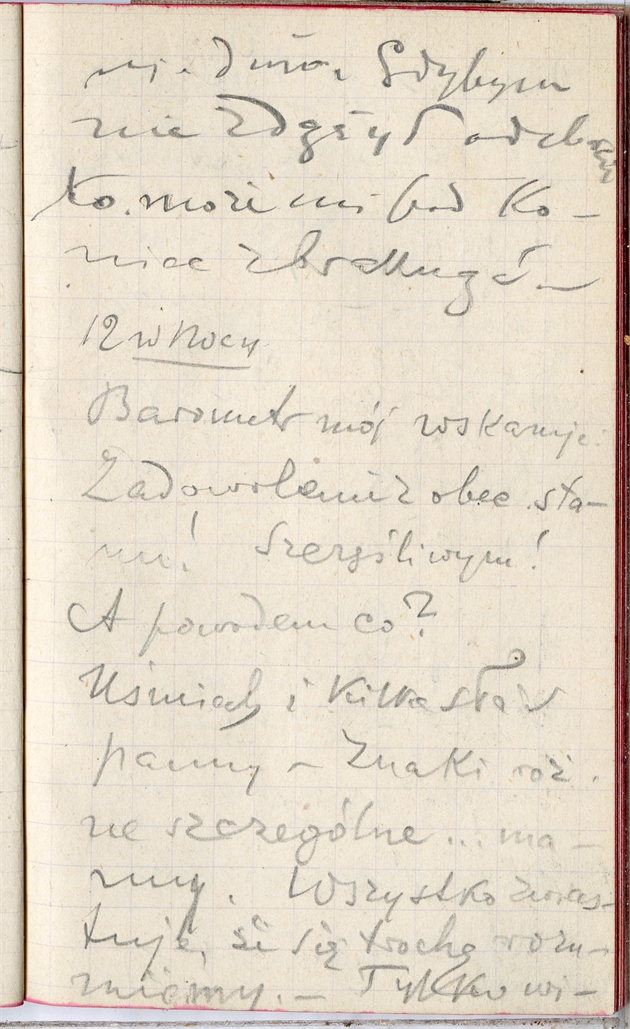 Gdybym
nie zdążył
to może mi pod ko-
niec
12 w nocy
Barometr mój wskazuje:
Zadowolenie z obec. sta-
nu! Szczęśliwym!
A powodem co?
Uśmiech i kilka słów
panny – Znaki róż.
ne szczególne... ma-
my. Wszystko zwias-
tuje, że się trochę rozu-
miemy. – Tylko wi-